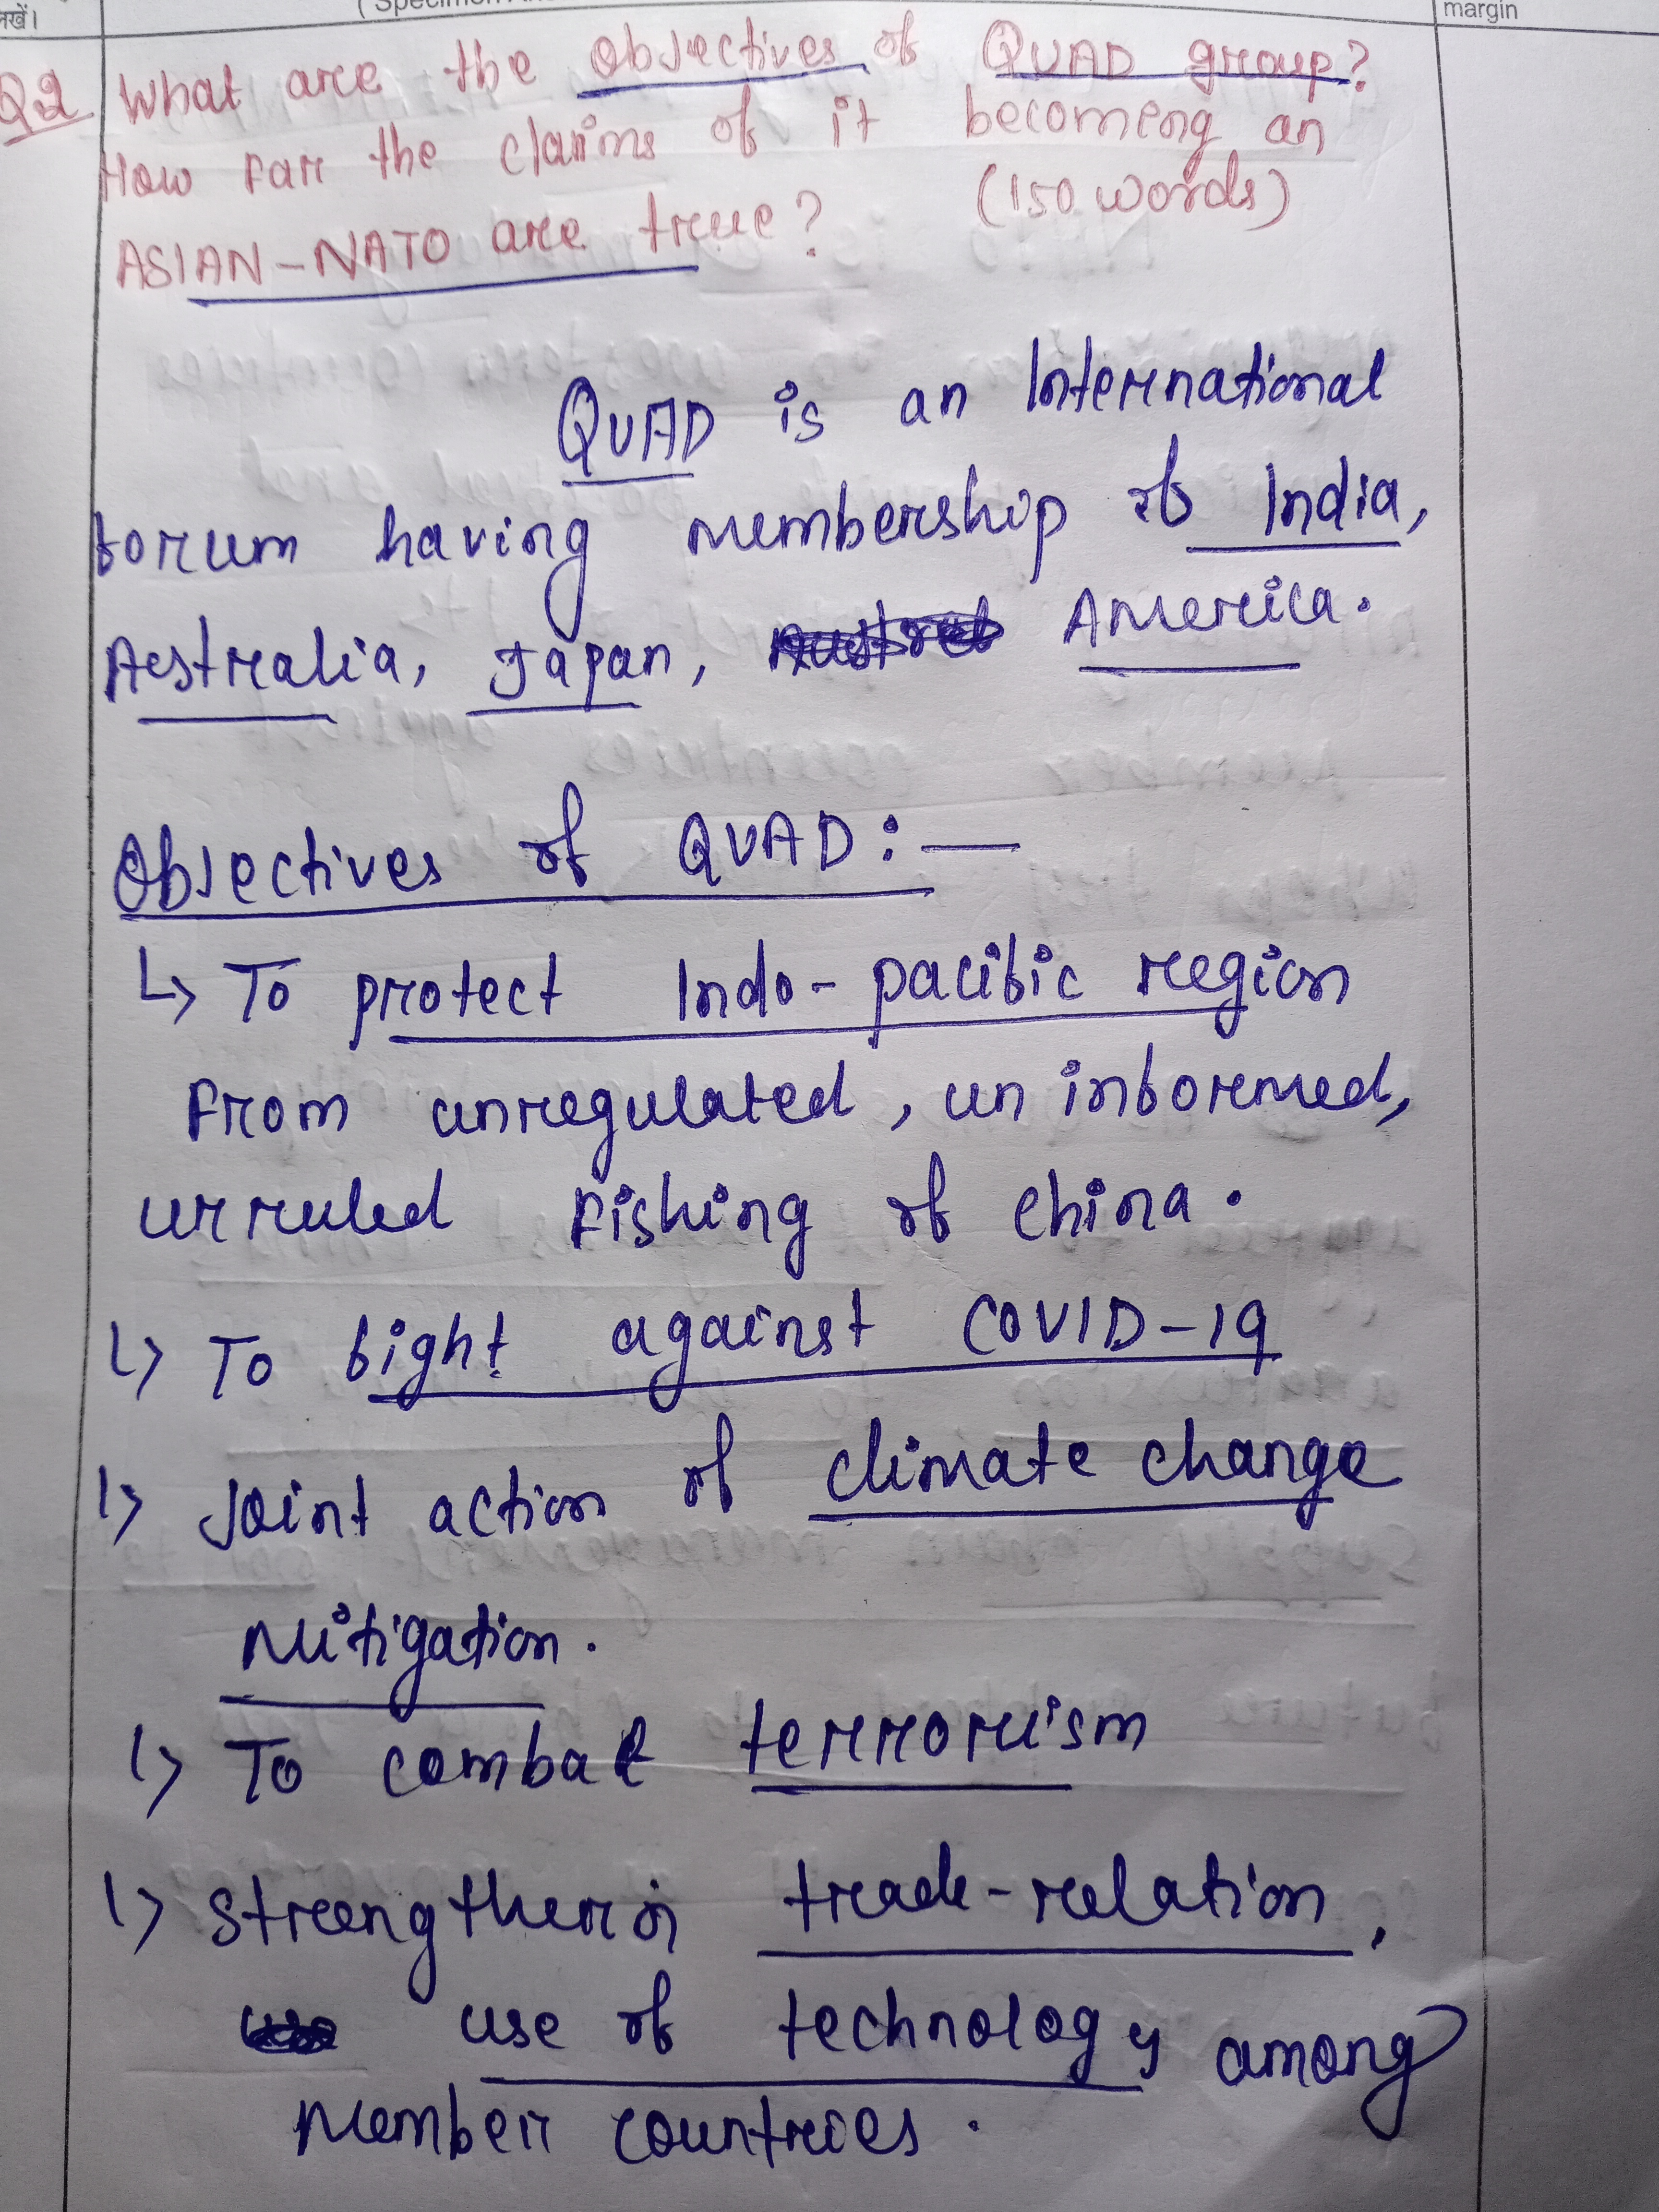 margin
Q2 What are the objectives of QUAD group?
How far the claims of it becoming an
ASIAN-NATO are true? (150 words)
QUAD is an International
forum having membership of India,
Aestralia, Japan, America.
Objectives of QUAD:—
↳ To protect Indo-pacific region
From unregulated, un informed,
unruled Fishing of china.
↳ To fight against COVID-19
↳ Joint action of climate change
mitigation.
↳ To combat terrorism
↳ strengthenin trade-relation,
use of technology among
member countries.